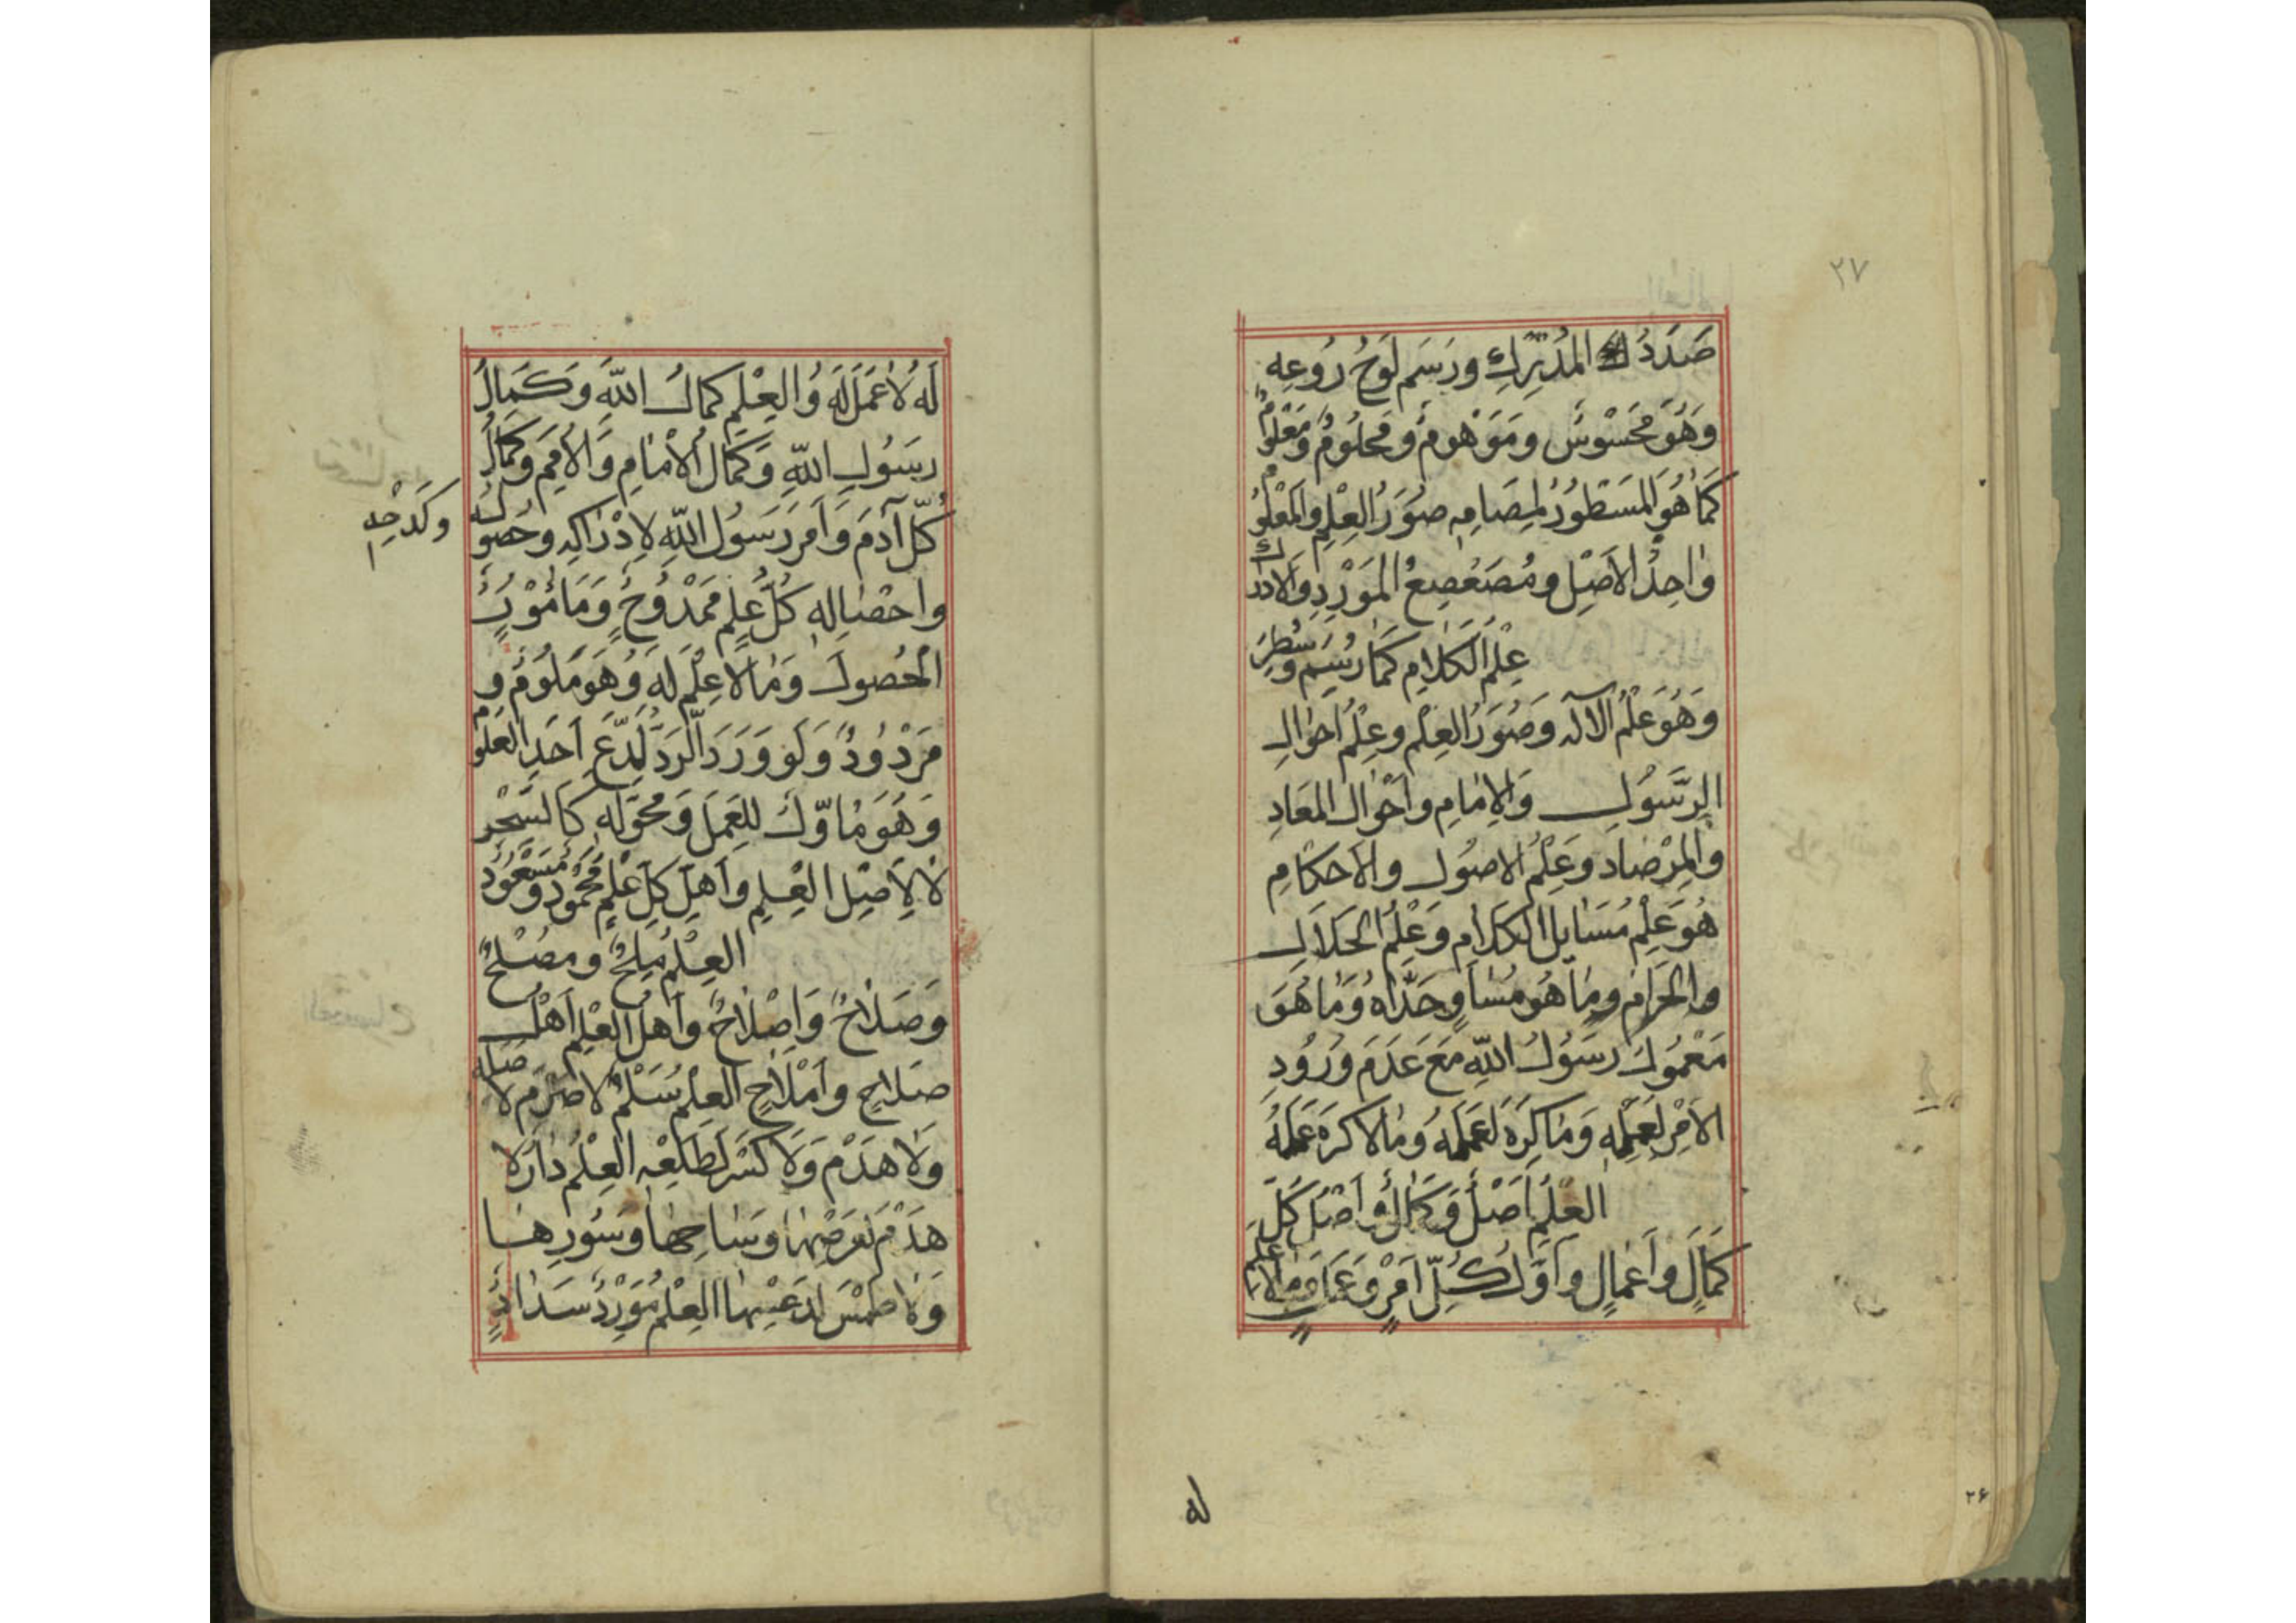 ٢٧
صَدَدُ المُدْرِكِ ورَسَم لَوحُ رُوعِهِ
وَهُوَ مَحْسُوسٌ ومَوْهومٌ ومَحلُومٌ ومَعْلُومٌ
كَمَا هُوَ المَسطُورُ لمِصَامِهِ صُوَرُ العِلمِ والمَعْلُومُ
واحِدُ الاَصْلِ ومُصَعْصِعُ المَوْرِدِ والادراك
عِلمُ الكَلامِ كَمَا رُسِمَ وسُطِرَ
وَهُوَ عِلْمُ الالٰه وَصُوَرُ العِلْمِ وعِلْمُ اَحوالِ
الرَّسُولِ وَالاِمَامِ واَحْوالِ المَعَادِ
والمِرْصَاد وَعِلْمُ الاصُولِ والاَحكَامِ
هُوَ عِلْمُ مَسَايِلِ الكَلَامِ وَعِلْمُ الحَلَالِ
والحَرَامِ ومَا هُوَ مُسَاوٍ حَدَّاهُ وَمَا هُوَ
مَعْمُولُ رَسُولِ اللّهِ مَعَ عَدَمِ وُرُودِ
الاَمْرِ لِعَمَلِهِ وَمَا كَرِهَ لِعَمَلِهِ وَمَا لا كَرِهَ عَمَلَهُ
العِلْمُ اَصْلٌ وَكَمَالٌ واَصْلُ كُلِّ
كَمَالٍ وأَعمَالٍ وَاَوَّلُ كُلِّ اَمْرٍ وَعَمَلٍ ومَا لا عِلمَ
له
٢۶
لَهُ لاٰ عَمَلَ لَهُ وَالعِلْمُ كمالُ اللّهِ وَكَمَالُ
رسُولِ اللّهِ وَكَمَالُ الاِمَامِ وَالاُمَمِ وَكَمَالُ
كُلِّ آدَمَ وَاَمَرَ رَسُولُ اللّهِ لاِدْرَاكِهِ وحُصُولِهِ
وكَدحِهِ
واحْصَالِهِ كُلُّ عِلمٍ مَمْدُوحٌ وَمَامُورُ
الحُصُولِ وَمَا لا عِلْمَ لَهُ وَهُوَ مَلُومٌ و
مَرْدُودٌ وَلَو وَرَدَ الرَدُّ لِدَّعَ اَحَدِ العُلُومِ
وَهُوَ مأَوّلٌ لِلعَمَلِ وَمُحوّلٌ لَهُ كَالسِّحْرِ
لاٰ لاَصْلِ العِلمِ وَاَهلُ كُلِّ عِلْمٍ مَحمُودٌ ومَسْعُودٌ
العِلمُ مِلحٌ ومُصْلحٌ
وصَلاحٌ وَاِصْلاحٌ واَهلُ العِلمِ اَهْلُ
صَلاحٍ وَاَمْلاحٍ العِلمُ سُلَّمٌ لا صَرْمَ لا
وَلا هَدْمَ وَلا كَسْرَ لِطَلعِهِ العِلمُ دارٌ لاٰ
هَدْمَ لعَرصِهَا وسَاحِهَا وسُورِهَا
وَلا طَمْسَ العِلْمُ مَورِدُ سَدَادٍ